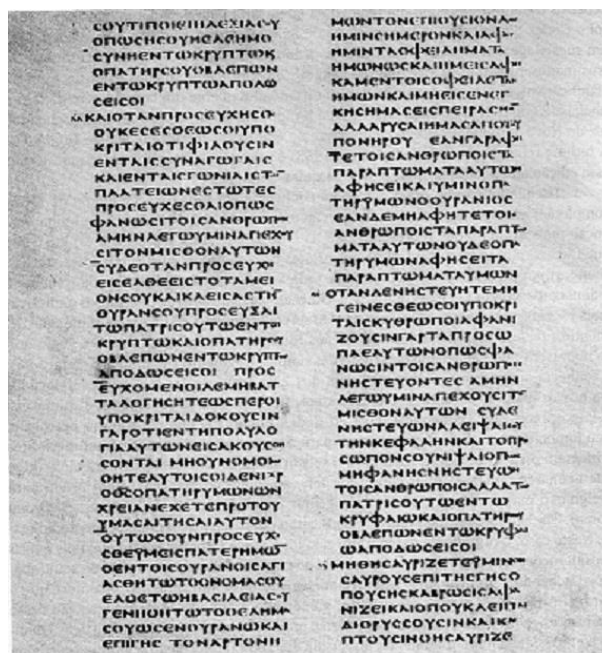 ϹΟΥΤΙΠΟΙΕΙΗΔΕΞΙΑϹΟΥ
ΟΠΩϹΗϹΟΥΗΕΛΕΗΜΟ
ϹΥΝΗΕΝΤΩΚΡΥΠΤΩΚ
ΟΠΑΤΗΡϹΟΥΟΒΛΕΠΩΝ
ΕΝΤΩΚΡΥΠΤΩΑΠΟΔΩ
ϹΕΙϹΟΙ
ΚΑΙΟΤΑΝΠΡΟϹΕΥΧΗϹΘ
ΟΥΚΕϹΕϹΘΕΩϹΟΙΥΠΟ
ΚΡΙΤΑΙΟΤΙΦΙΛΟΥϹΙΝ
ΕΝΤΑΙϹϹΥΝΑΓΩΓΑΙϹ
ΚΑΙΕΝΤΑΙϹΓΩΝΙΑΙϹΤ
ΠΛΑΤΕΙΩΝΕϹΤΩΤΕϹ
ΠΡΟϹΕΥΧΕϹΘΑΙΟΠΩϹ
ΦΑΝΩϹΙΤΟΙϹΑΝΘΡΩΠ
ΑΜΗΝΛΕΓΩΥΜΙΝΑΠΕΧΟΥ
ϹΙΤΟΝΜΙϹΘΟΝΑΥΤΩΝ
ϹΥΔΕΟΤΑΝΠΡΟϹΕΥΧΗ
ΕΙϹΕΛΘΕΕΙϹΤΟΤΑΜΕΙ
ΟΝϹΟΥΚΑΙΚΛΕΙϹΑϹΤΗ
ΘΥΡΑΝϹΟΥΠΡΟϹΕΥΞΑΙ
ΤΩΠΑΤΡΙϹΟΥΤΩΕΝΤΩ
ΚΡΥΠΤΩΚΑΙΟΠΑΤΗΡϹΟΥ
ΟΒΛΕΠΩΝΕΝΤΩΚΡΥΠΤ
ΑΠΟΔΩϹΕΙϹΟΙ ΠΡΟϹ
ΕΥΧΟΜΕΝΟΙΔΕΜΗΒΑΤ
ΤΑΛΟΓΗϹΗΤΕΩϹΠΕΡΟΙ
ΥΠΟΚΡΙΤΑΙΔΟΚΟΥϹΙΝ
ΓΑΡΟΤΙΕΝΤΗΠΟΛΥΛΟ
ΓΙΑΑΥΤΩΝΕΙϹΑΚΟΥϹΘΗ
ϹΟΝΤΑΙ ΜΗΟΥΝΟΜΟΙ
ΩΘΗΤΕΑΥΤΟΙϹΟΙΔΕΝΓΑΡ
ΟΘϹΟΠΑΤΗΡΥΜΩΝΩΝ
ΧΡΕΙΑΝΕΧΕΤΕΠΡΟΤΟΥ
ΥΜΑϹΑΙΤΗϹΑΙΑΥΤΟΝ
ΟΥΤΩϹΟΥΝΠΡΟϹΕΥΧΕ
ϹΘΕΥΜΕΙϹΠΑΤΕΡΗΜΩ
ΟΕΝΤΟΙϹΟΥΡΑΝΟΙϹΑΓΙ
ΑϹΘΗΤΩΤΟΟΝΟΜΑϹΟΥ
ΕΛΘΕΤΩΗΒΑϹΙΛΕΙΑϹΟΥ
ΓΕΝΗΘΗΤΩΤΟΘΕΛΗΜΑ
ϹΟΥΩϹΕΝΟΥΡΑΝΩΚΑΙ
ΕΠΙΓΗϹ ΤΟΝΑΡΤΟΝΗ
ΜΩΝΤΟΝΕΠΙΟΥϹΙΟΝΔ
ΗΜΙΝϹΗΜΕΡΟΝΚΑΙΑΦΕϹ
ΗΜΙΝΤΑΟΦΕΙΛΗΜΑΤΑ
ΗΜΩΝΩϹΚΑΙΗΜΕΙϹΑΦΗ
ΚΑΜΕΝΤΟΙϹΟΦΕΙΛΕΤΑΙϹ
ΗΜΩΝΚΑΙΜΗΕΙϹΕΝΕΓ
ΚΗϹΗΜΑϹΕΙϹΠΕΙΡΑϹΜ
ΑΛΛΑΡΥϹΑΙΗΜΑϹΑΠΟΤΟΥ
ΠΟΝΗΡΟΥ ΕΑΝΓΑΡΑΦΗ
ΤΕΤΟΙϹΑΝΘΡΩΠΟΙϹΤΑ
ΠΑΡΑΠΤΩΜΑΤΑΑΥΤΩΝ
ΑΦΗϹΕΙΚΑΙΥΜΙΝΟΠΑ
ΤΗΡΥΜΩΝΟΟΥΡΑΝΙΟϹ
ΕΑΝΔΕΜΗΑΦΗΤΕΤΟΙϹ
ΑΝΘΡΩΠΟΙϹΤΑΠΑΡΑΠΤ
ΜΑΤΑΑΥΤΩΝΟΥΔΕΟΠΑ
ΤΗΡΥΜΩΝΑΦΗϹΕΙΤΑ
ΠΑΡΑΠΤΩΜΑΤΑΥΜΩΝ
ΟΤΑΝΔΕΝΗϹΤΕΥΗΤΕΜΗ
ΓΕΙΝΕϹΘΕΩϹΟΙΥΠΟΚΡΙ
ΤΑΙϹΚΥΘΡΩΠΟΙΑΦΑΝΙ
ΖΟΥϹΙΝΓΑΡΤΑΠΡΟϹΩ
ΠΑΕΑΥΤΩΝΟΠΩϹΦΑ
ΝΩϹΙΝΤΟΙϹΑΝΘΡΩΠ
ΝΗϹΤΕΥΟΝΤΕϹ ΑΜΗΝ
ΛΕΓΩΥΜΙΝΑΠΕΧΟΥϹΙΤ
ΜΙϹΘΟΝΑΥΤΩΝ ϹΥΔΕ
ΝΗϹΤΕΥΩΝΑΛΕΙΨΑΙϹΟΥ
ΤΗΝΚΕΦΑΛΗΝΚΑΙΤΟΠΡ
ϹΩΠΟΝϹΟΥΝΙΨΑΙΟΠΩϹ
ΜΗΦΑΝΗϹΝΗϹΤΕΥΩ
ΤΟΙϹΑΝΘΡΩΠΟΙϹΑΛΛΑΤ
ΠΑΤΡΙϹΟΥΤΩΕΝΤΩ
ΚΡΥΦΑΙΩΚΑΙΟΠΑΤΗΡϹΟΥ
ΟΒΛΕΠΩΝΕΝΤΩΚΡΥΦΑΙ
ΩΑΠΟΔΩϹΕΙϹΟΙ
ΜΗΘΗϹΑΥΡΙΖΕΤΕΥΜΙΝ
ϹΑΥΡΟΥϹΕΠΙΤΗϹΓΗϹΟ
ΠΟΥϹΗϹΚΑΒΡΩϹΙϹΑΦΑ
ΝΙΖΕΙΚΑΙΟΠΟΥΚΛΕΠΤΑΙ
ΔΙΟΡΥϹϹΟΥϹΙΝΚΑΙΚΛΕ
ΠΤΟΥϹΙΝΘΗϹΑΥΡΙΖΕ